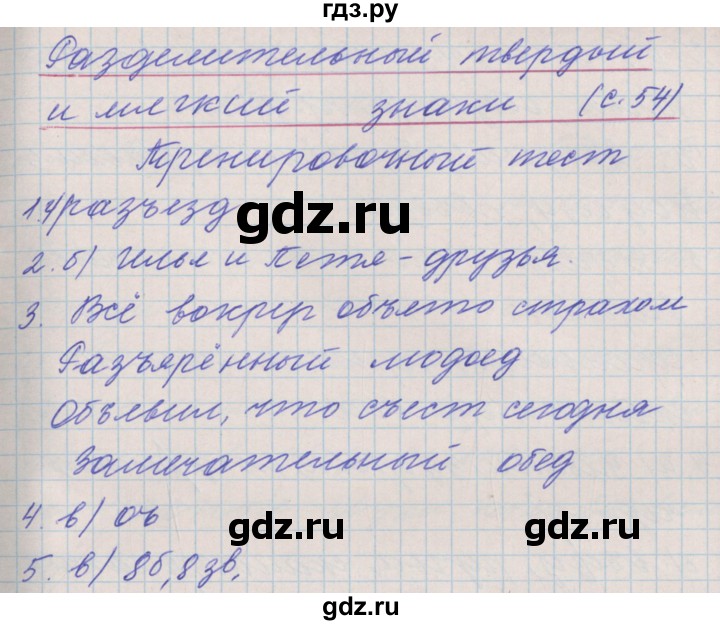 гдз.ру
Разделительный твердый
и мягкий знаки (с. 54)
Тренировочный тест
разъезд
gdz.ru
2. б) Илья и Петя - друзья.
3. Всё вокруг объято страхом
Разъярённый людоед
Объявил, что съест сегодня
Замечательный обед
4. в) оь
gdz.ru gdz.ru
5. в) 8б, 8зв.
gdz.ru